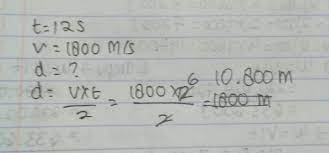 t=12s
v=1800 m/s
d=?
d= vxt/2 = 1800x12/2 6 = 10.800m
1800 m